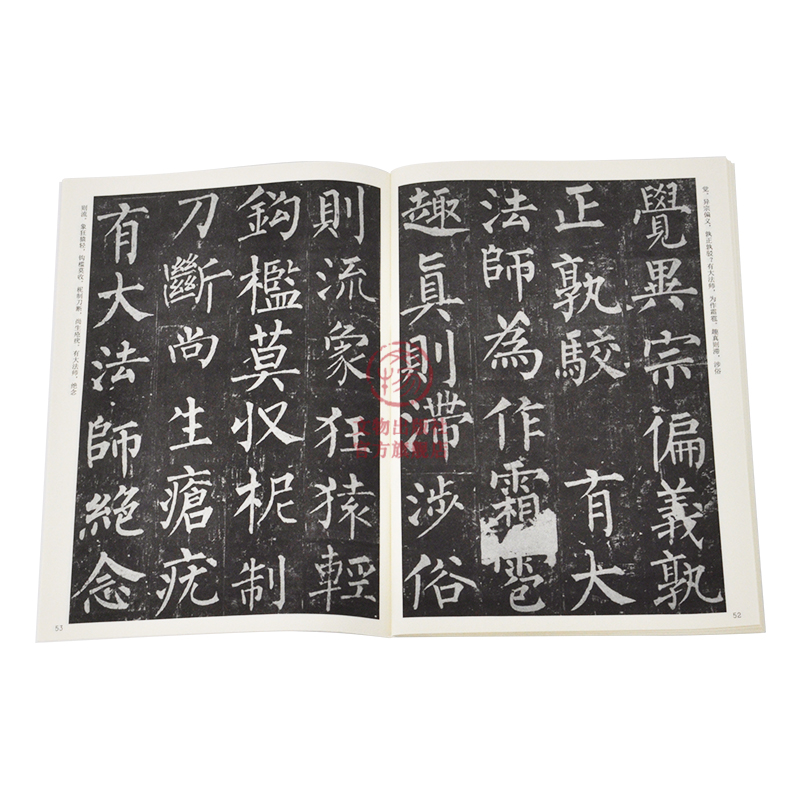 觉。异宗偏义，孰正孰驳？有大法师，为作霜雹。趣真则滞，涉俗
覺異宗偏義孰
正孰駮 有大
法師為作霜雹
趣真則滯涉俗
52
則流象狂猿輕
鈎檻莫收柅制
刀斷尚生瘡疣
有大法師絕念
则流。象狂猿轻，钩槛莫收。柅制刀断，尚生疮疣。有大法师，绝念
53
文物
文物出版社
官方旗舰店